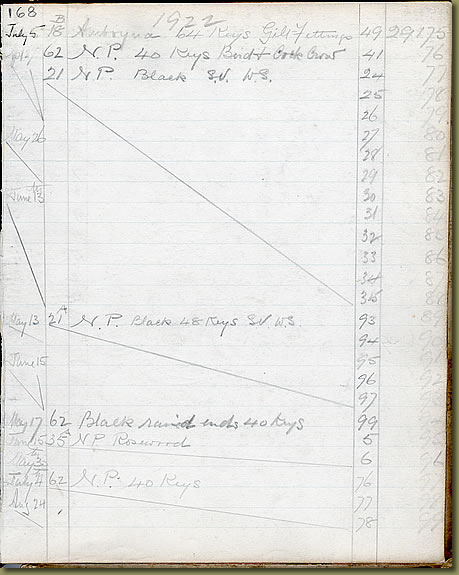 168
1922
July 5 18 B Amboyna 64 Keys Gilt Fittings 49 29175
62 N.P. 40 Keys Bird & Cock Crow 41 76
21 N.P. Black S.V. W.S. 24 77
25 78
26 79
May 26 27 80
28 81
29 82
June 13 30 83
31 84
32
33 86
34
35
May 13 21 A N.P. Black 48 Keys S.V. W.S. 93
94
June 15 95
96
97
May 17 62 Black rais'd ends 40 Keys 99
June 15 35 A N.P. Rosewood 5
May 6
July 4 62 N.P. 40 Keys 76
Aug 24 77
78